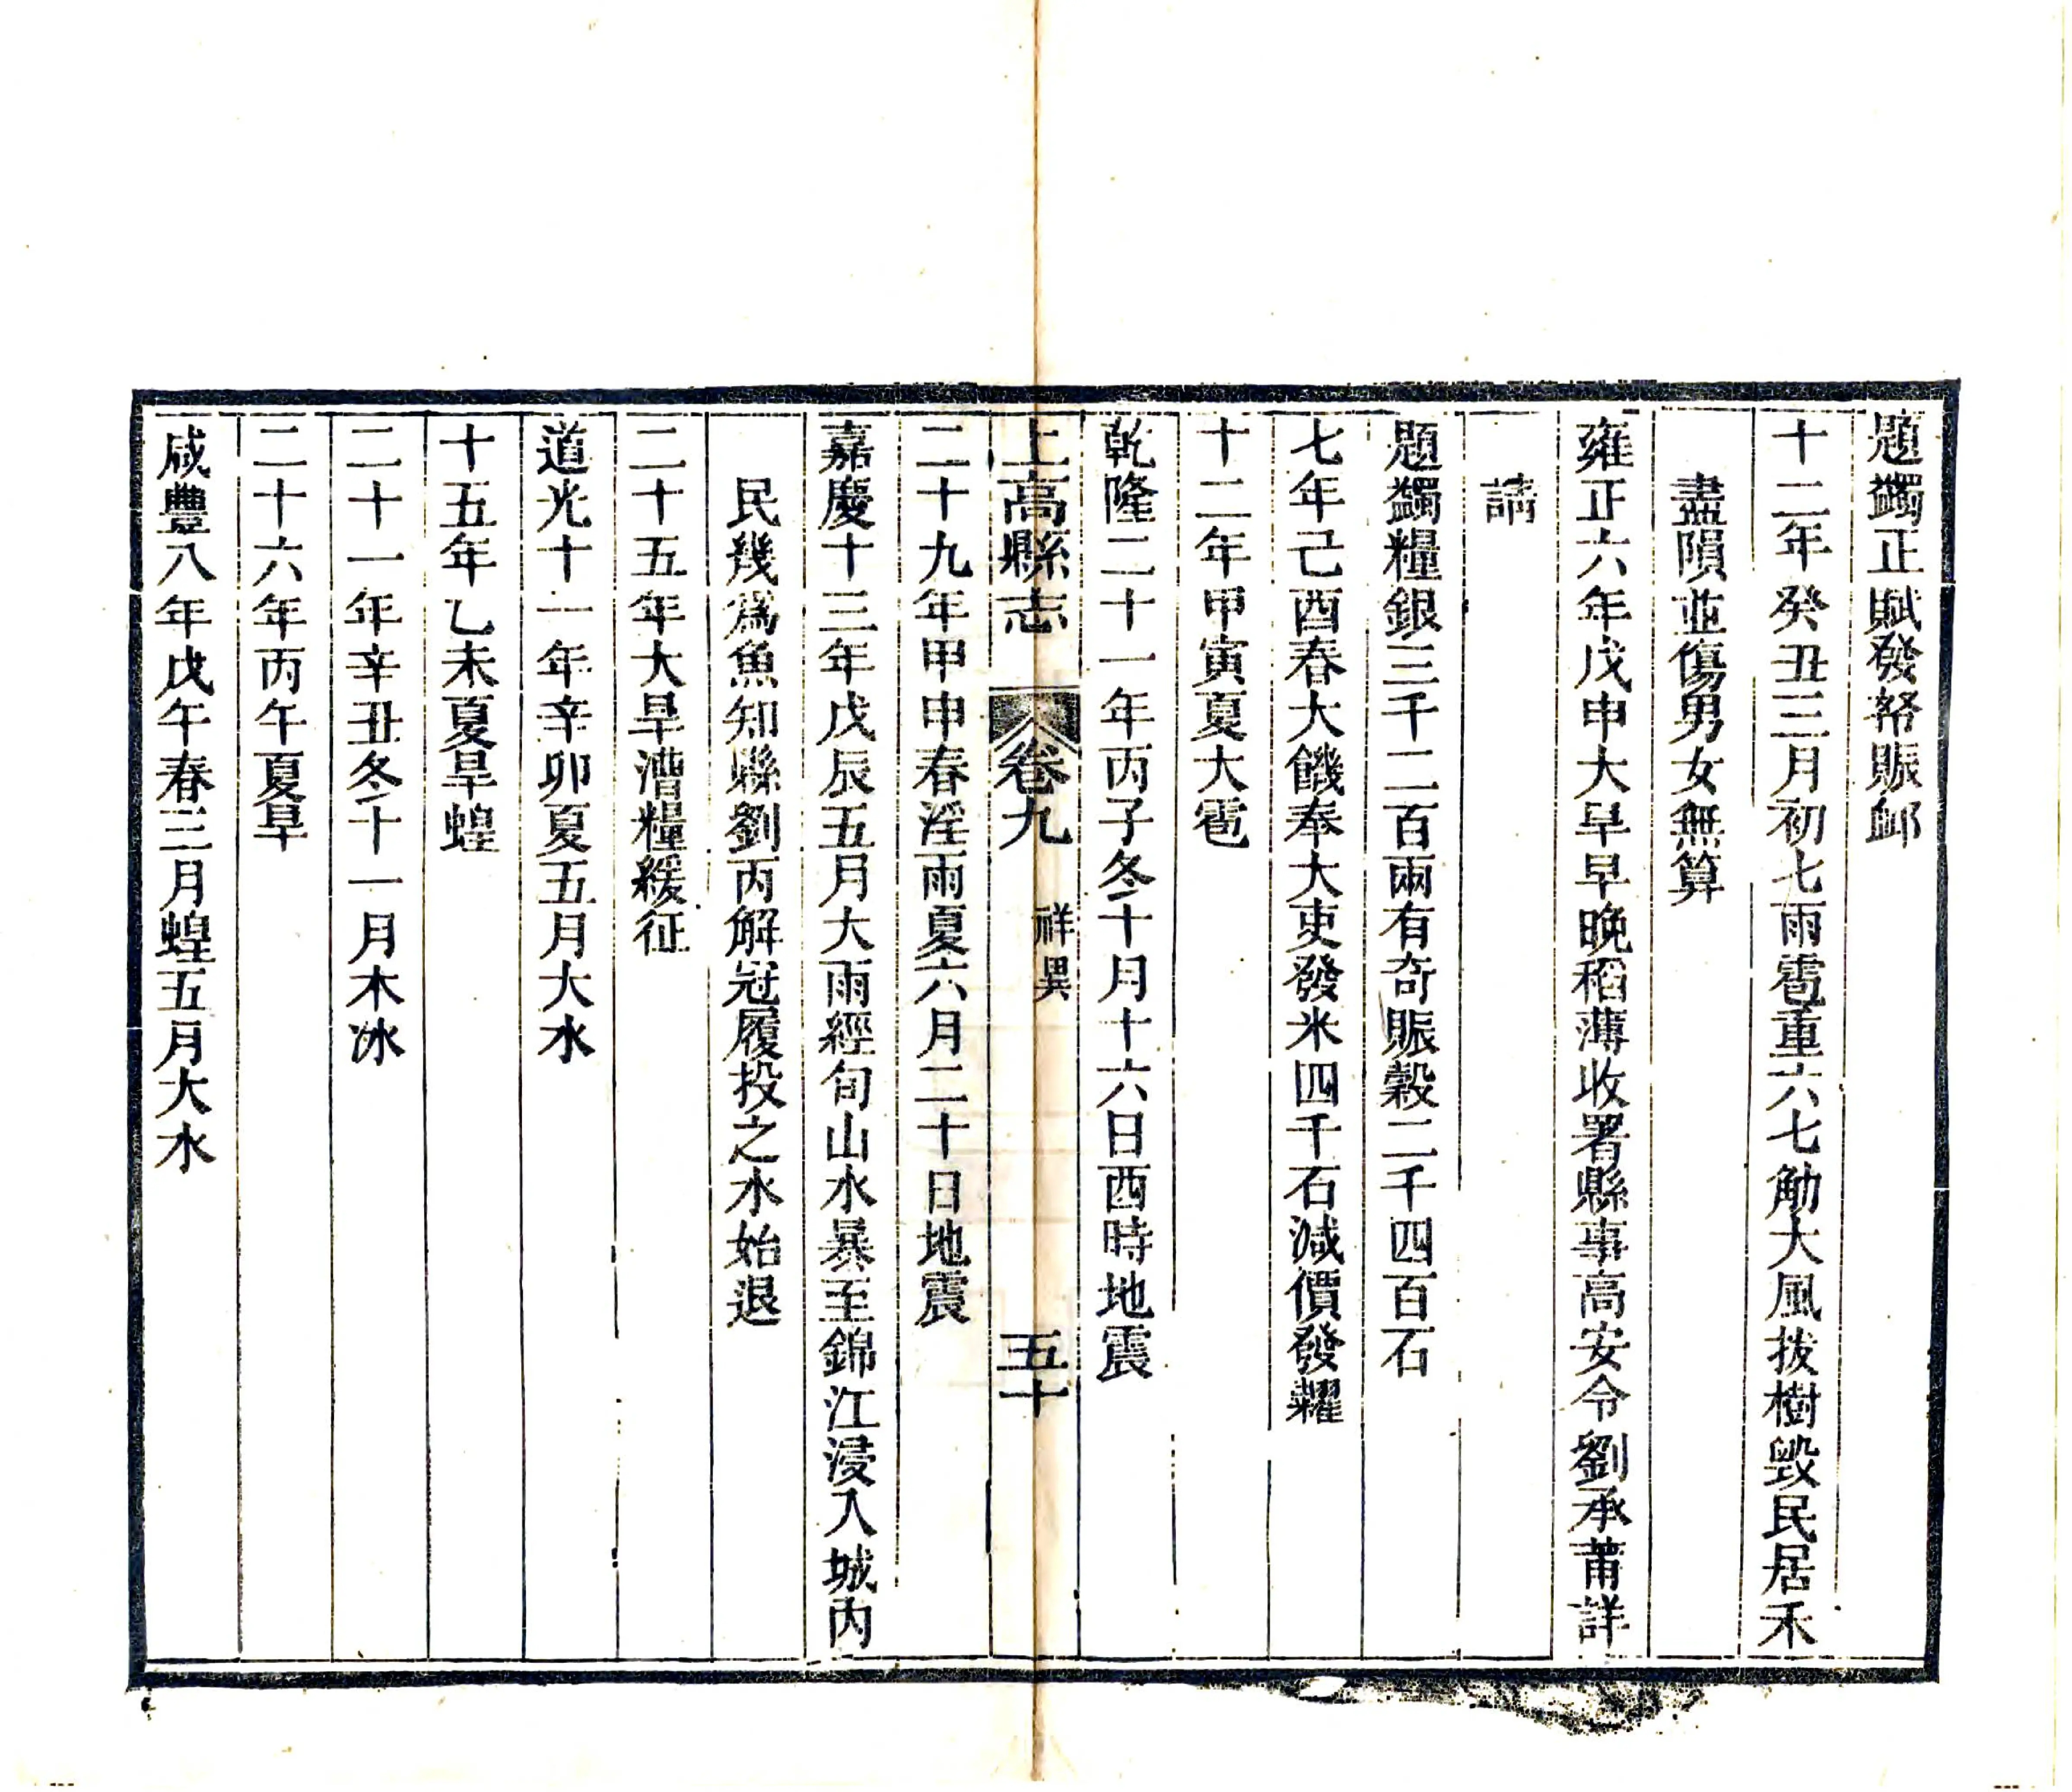 題蠲正賦發帑賑䘏
十二年癸丑三月初七雨雹重六七觔大風拔樹毀民居禾
盡隕並傷男女無算
雍正六年戊申大旱早晚稻薄收署縣事高安令劉承莆詳
請
題蠲糧銀三千二百兩有奇賑穀二千四百石
七年己酉春大饑奉大吏發米四千石減價發糶
十二年甲寅夏大雹
乾隆二十一年丙子冬十月十六日酉時地震
上高縣志 卷九 祥異 五十
二十九年甲申春淫雨夏六月二十日地震
嘉慶十三年戊辰五月大雨經旬山水暴至錦江浸入城內
民幾爲魚知縣劉丙解冠履投之水始退
二十五年大旱漕糧緩征
道光十一年辛卯夏五月大水
十五年乙未夏旱蝗
二十一年辛丑冬十一月木冰
二十六年丙午夏旱
咸豐八年戊午春三月蝗五月大水